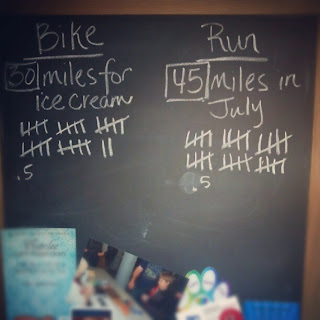 Bike
30 miles for
ice cream
.5
Run
45 Miles in
July
.5